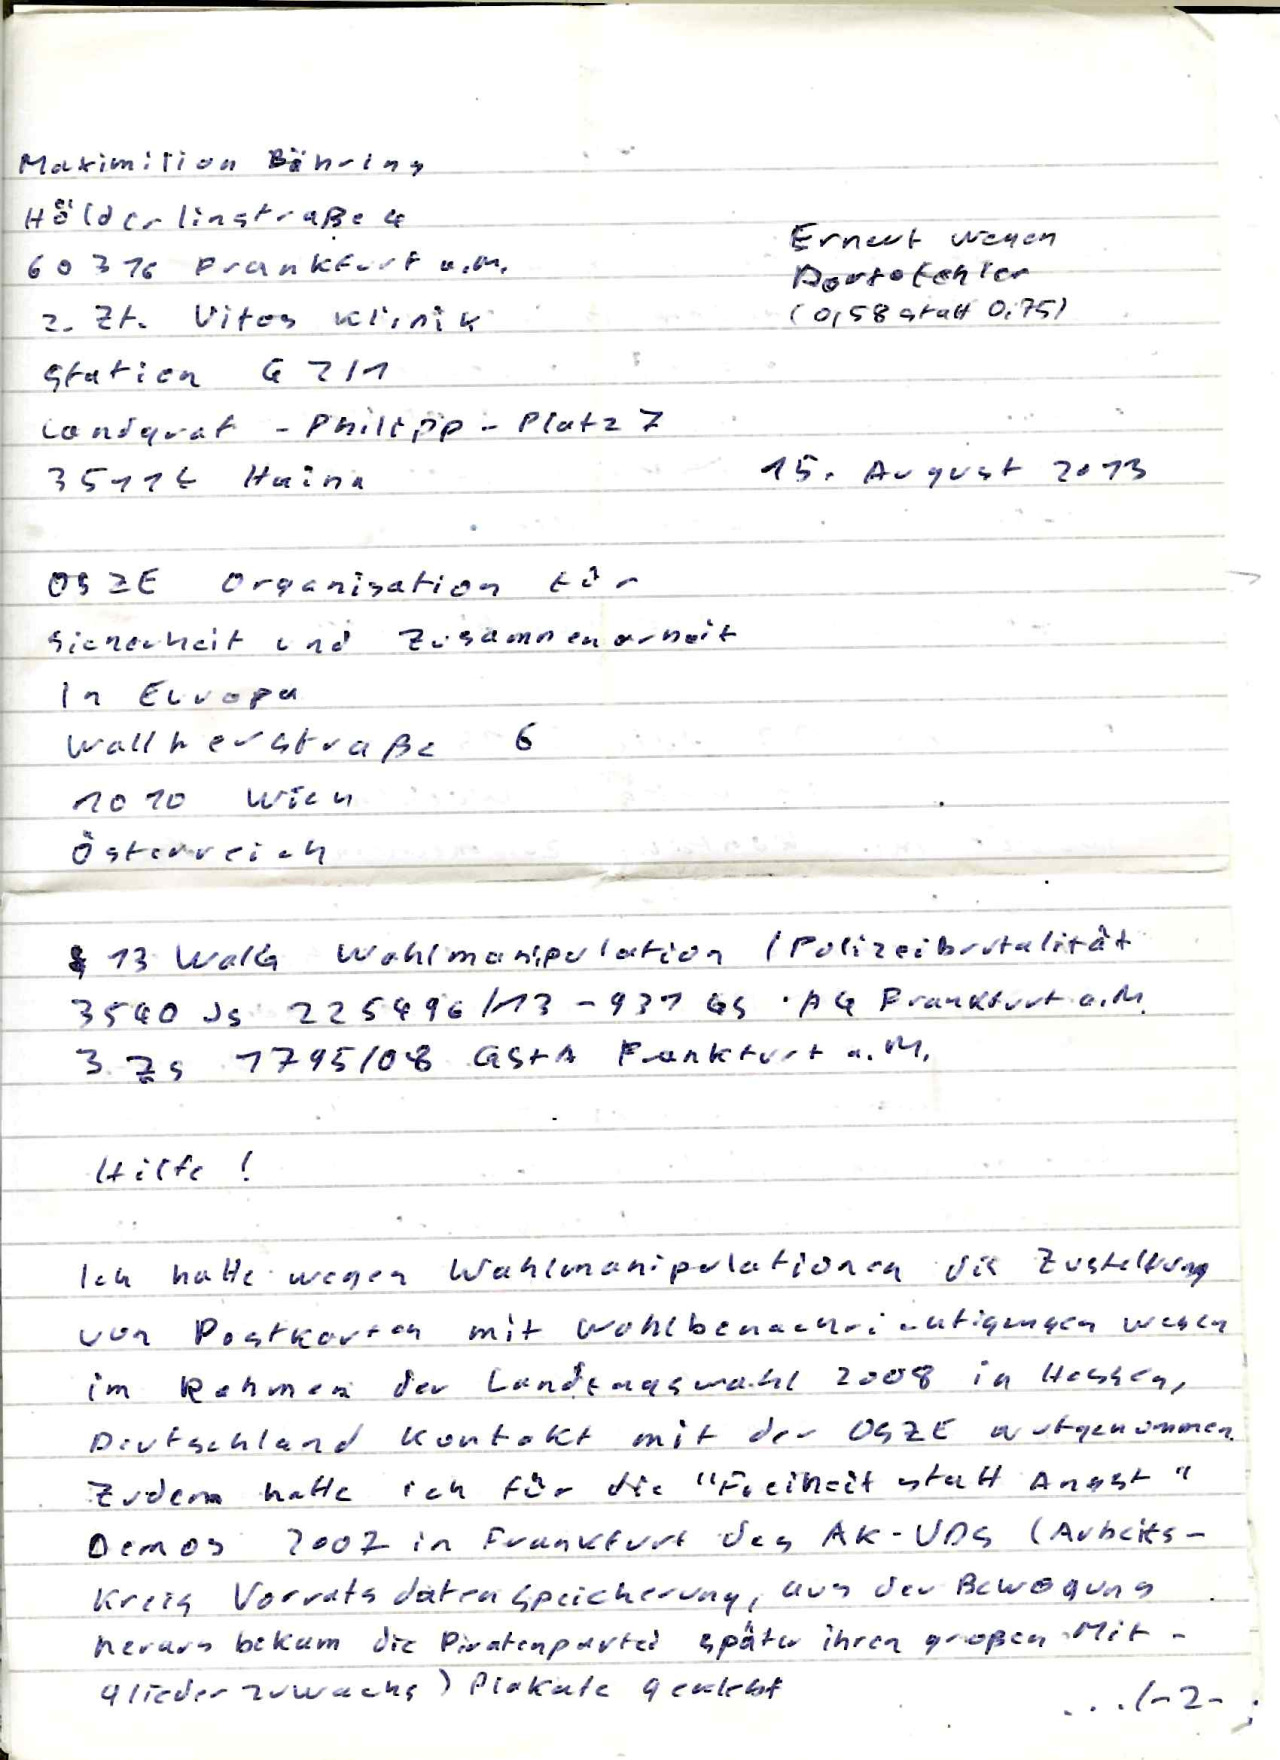 Maximilian Bähring
Hölderlinstraße 4
60316 Frankfurt a.M.
Erneut wegen
Portofehler
(0,58 statt 0,75)
z. Zt. Vitos Klinik
Station G 2/1
Landgraf - Philipp - Platz 7
35114 Haina
15. August 2013
OSZE Organisation für
Sicherheit und Zusammenarbeit
in Europa
Wallnerstraße 6
1010 Wien
Österreich
§ 13 WalG Wahlmanipulation / Polizeibrutalität
3540 Js 225496/13 - 931 Gs · AG Frankfurt a.M.
3 Zs 1795/08 GStA Frankfurt a.M.
Hilfe !
Ich hatte wegen Wahlmanipulationen die Zustellung
von Postkarten mit Wahlbenachrichtigungen wegen
im Rahmen der Landtagswahl 2008 in Hessen,
Deutschland Kontakt mit der OSZE aufgenommen.
Zudem hatte ich für die "Freiheit statt Angst"
Demos 2007 in Frankfurt des AK-VDS (Arbeits-
kreis Vorratsdatenspeicherung, aus der Bewegung
heraus bekam die Piratenpartei später ihren großen Mit-
gliederzuwachs) Plakate geklebt
.../-2-